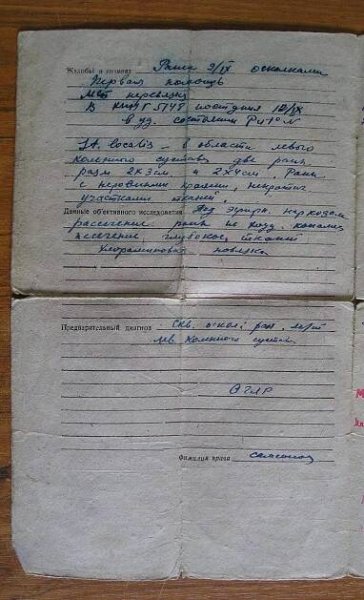 Жалобы и анамнез Ранен 9/IX осколками
Первая помощь
МСБ перевязка
В КППГ 5148 поступил 10/IX
в уд. состоянии P и t° N
St. localis – в области левого
коленного сустава две раны
разм 2×3см. и 2×4см. Раны
с неровными краями, некротич.
участками тканей.
Данные объективного исследования Под эфирн. наркозом
рассечение раны по ходу канала
иссечение глубоких тканей
Хлораминовая повязка
Предварительный диагноз Скв. оскол. ран. м/т
лев. коленного сустава
Фамилия врача